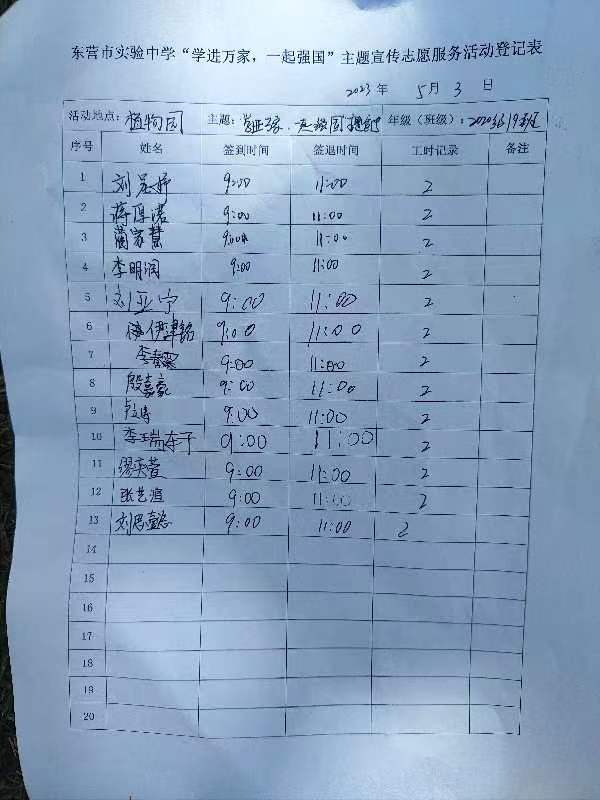 东营市实验中学“学进万家，一起强国”主题宣传志愿服务活动登记表
2023年 5月 3 日
活动地点：植物园 主题： 年级（班级）：
序号 姓名 签到时间 签退时间 工时记录 备注
1 刘 9:00 11:00 2
2 蒋厚诺 9:00 11:00 2
3 蔺家慧 9:00 11:00 2
4 李明润 9:00 11:00 2
5 刘亚宁 9:00 11:00 2
6 伊津铭 9:00 11:00 2
7 李 9:00 11:00 2
8 殷嘉豪 9:00 11:00 2
9 9:00 11:00 2
10 李瑞 9:00 11:00 2
11 缪奕萱 9:00 11:00 2
12 张艺渲 9:00 11:00 2
13 刘思 9:00 11:00 2
14
15
16
17
18
19
20